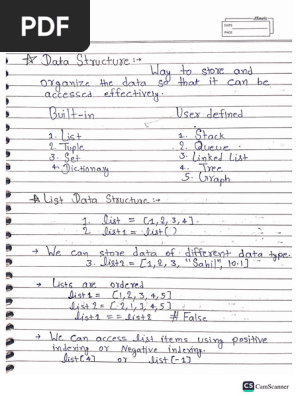 PDF
DATE
PAGE
☆ Data Structure :-
Way to store and
organize the data so that it can be
accessed effectively.
Built-in User defined
1. List 1. Stack
2. Tuple 2. Queue
3. Set 3. Linked List
4. Dictionary 4. Tree
5. Graph
☆ List Data Structure :-
1. list = [1,2,3,4]
2. list1 = list()
→ We can store data of different data type.
3. list2 = [1,2,3, "Sahil", 10.1]
→ Lists are ordered
list1 = [1,2,3,4,5]
list2 = [2,1,3,4,5]
list1 == list2 # False
→ We can access list items using positive
indexing or Negative Indexing.
list[4] or list[-1]
CS CamScanner